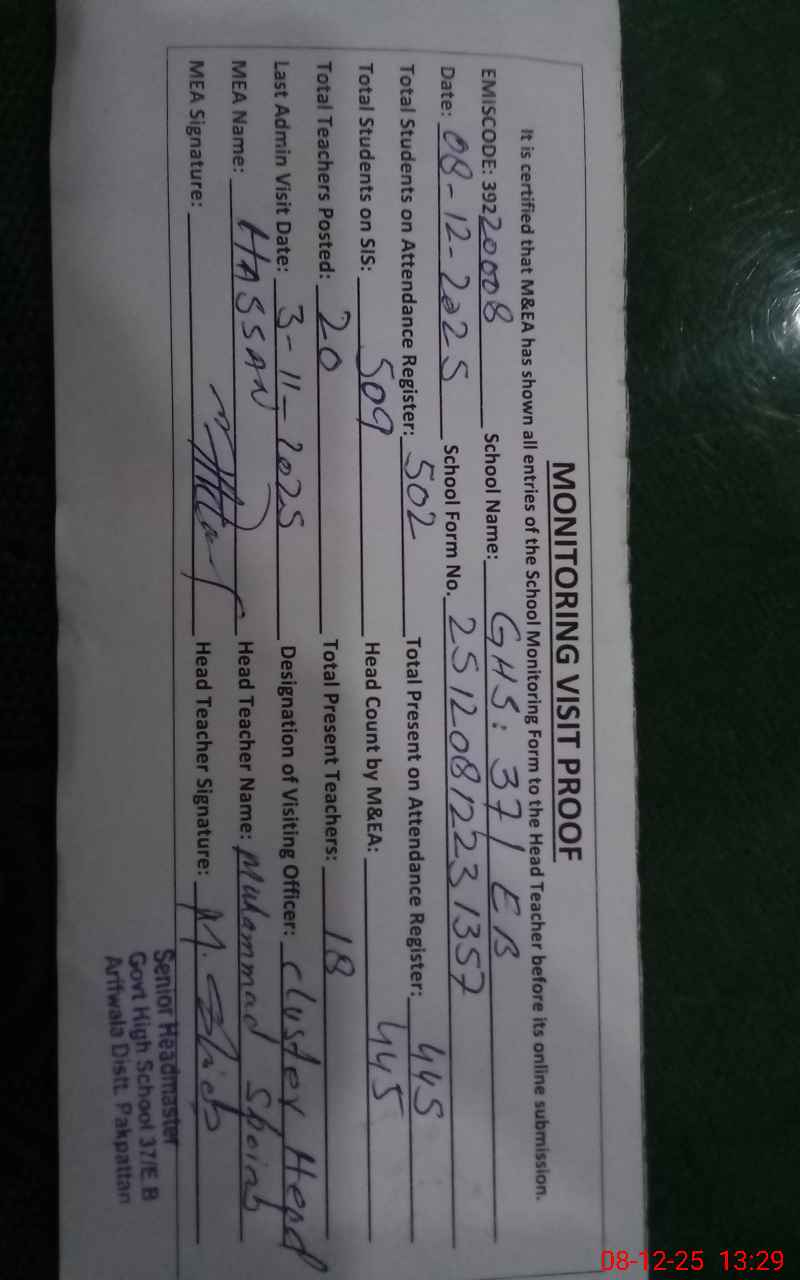 MONITORING VISIT PROOF
It is certified that M&EA has shown all entries of the School Monitoring Form to the Head Teacher before its online submission.
EMISCODE: 39220008 School Name: GHS: 37/EB
Date: 08-12-2025 School Form No. 2512081223 1357
Total Students on Attendance Register: 502 Total Present on Attendance Register: 445
Total Students on SIS: 509 Head Count by M&EA: 445
Total Teachers Posted: 20 Total Present Teachers: 18
Last Admin Visit Date: 3-11-2025 Designation of Visiting Officer: Cluster Head
MEA Name: HASSAN Head Teacher Name: Muhammad Shoaib
MEA Signature: Head Teacher Signature: M. Shoaib
Senior Headmaster
Govt High School 37/E.B
Arifwala Distt. Pakpattan
08-12-25 13:29